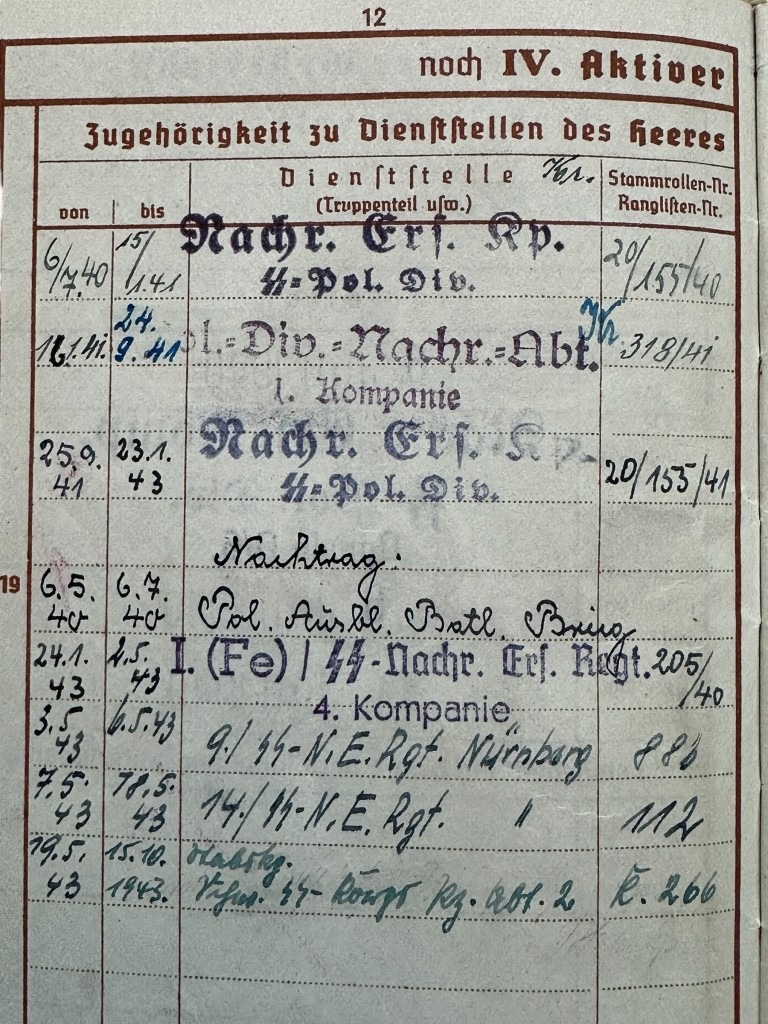 12
noch IV. Aktiver
Zugehörigkeit zu Dienststellen des Heeres
von bis Dienststelle (Truppenteil usw.) Kr. Stammrollen-Nr. Ranglisten-Nr.
6/7.40 15/1.41 Nachr. Ers. Kp. 20/155/40
ᛋᛋ-Pol. Div.
16.1.41. 24.9.41 ol.-Div.-Nachr.-Abt. Kr 318/41
1. Kompanie
25.9.41 23.1.43 Nachr. Ers. Kp. 20/155/41
ᛋᛋ-Pol. Div.
Nachtrag.
19
6.5.40 6.7.40 Pol. Ausbl. Batl. Brieg
24.1.43 2.5.43 I. (Fe) / ᛋᛋ-Nachr. Ers. Regt. 205/40
4. Kompanie
3.5.43 6.5.43 9./ ᛋᛋ-N.E.Rgt. Nürnberg 886
7.5.43 18.5.43 14./ ᛋᛋ-N.E.Rgt. " 112
19.5.43 15.10.1943. Stabskp.
ᛋᛋ- Abt. 2 K. 266